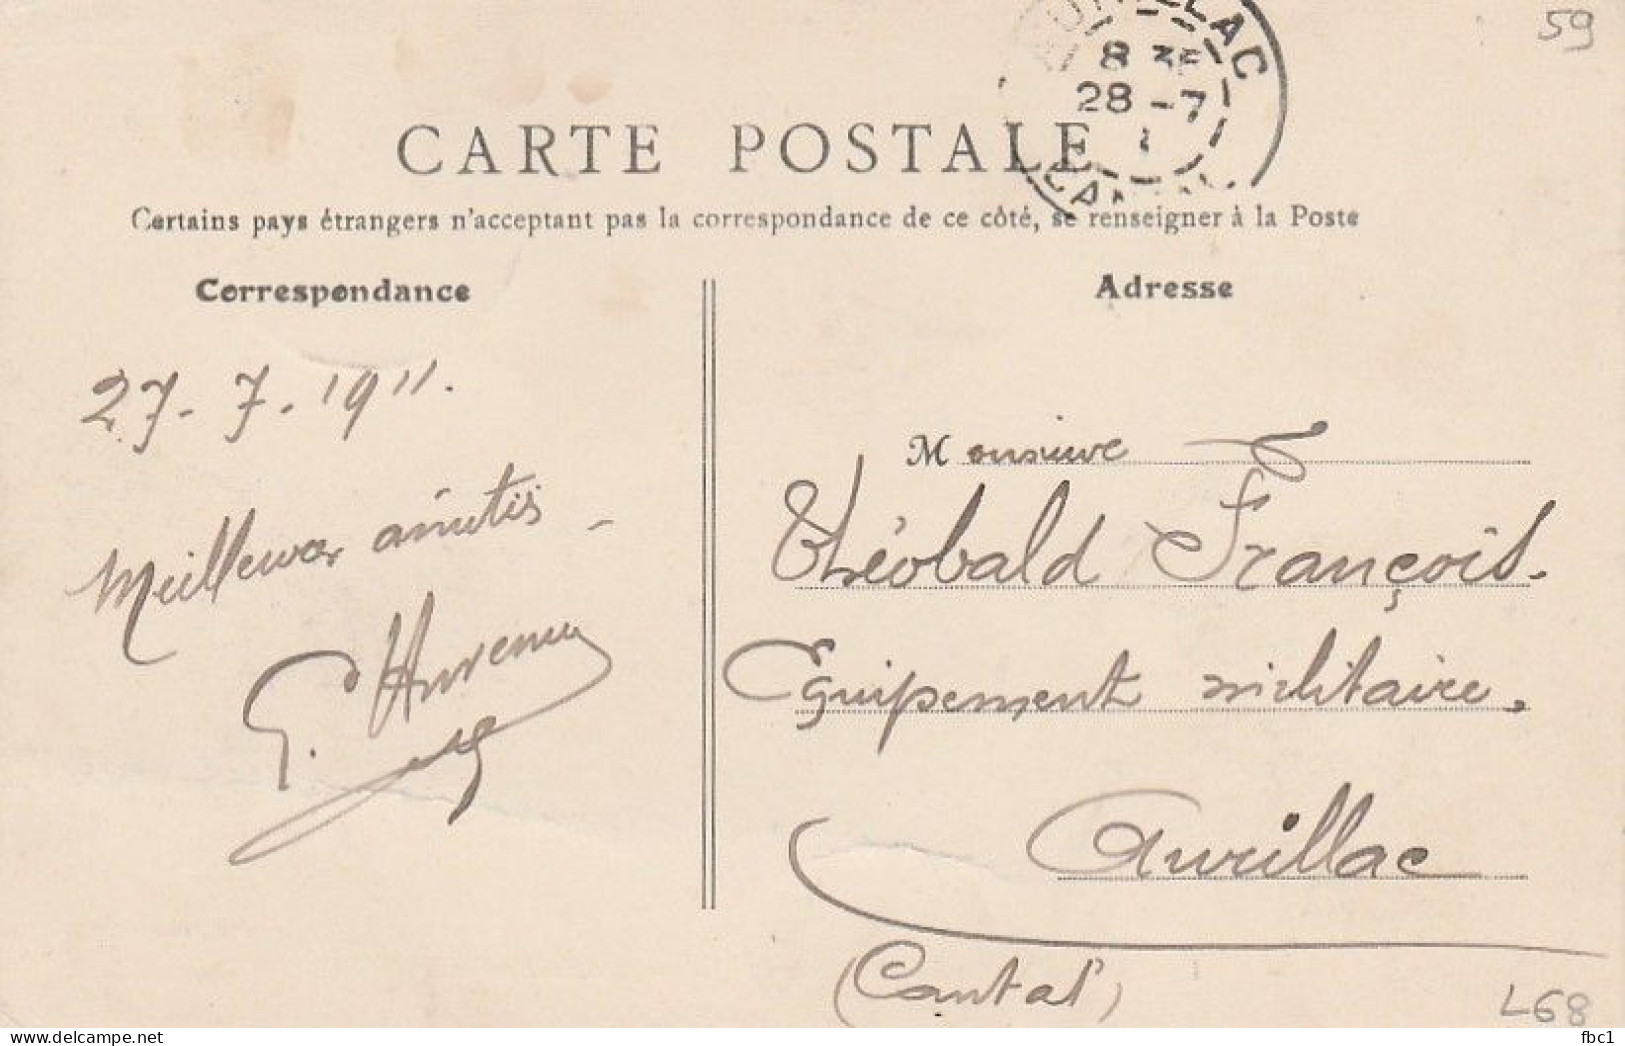 59
AURILLAC
8 3E
28 -7
CANTAL
CARTE POSTALE
Certains pays étrangers n'acceptant pas la correspondance de ce côté, se renseigner à la Poste
Correspondance
27-7-1911.
Meilleures amitiés -
Adresse
Monsieur
Théobald François.
Equipement militaire,
Aurillac
(Cantal)
L68
fbc1